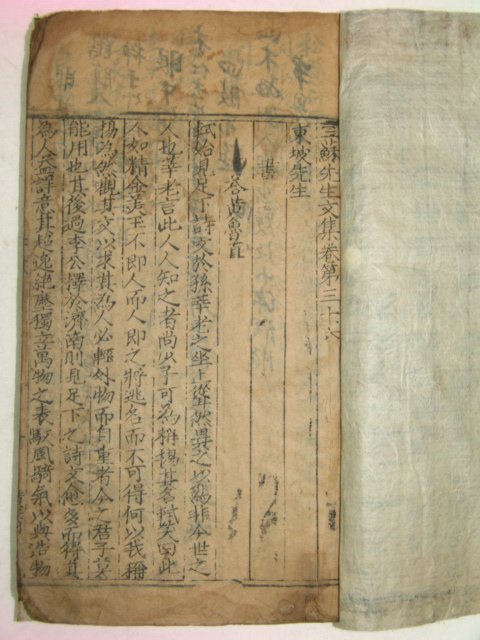 三蘇先生文集卷第三十六
東坡先生
書
答黃魯直
軾始見足下詩文於孫莘老之坐上聳然異之以為非今世之
人也莘老言此人人知之者尚少子可為稱揚其名軾笑曰此
人如精金美玉不即人而人即之將逃名而不可得何以我稱
揚為然觀其文以求其為人必輕外物而自重者今之君子莫
能用也其後過李公擇於濟南則見足下之詩文愈多而得其
為人益詳意其超逸絕塵獨立萬物之表馭風騎氣以與造物